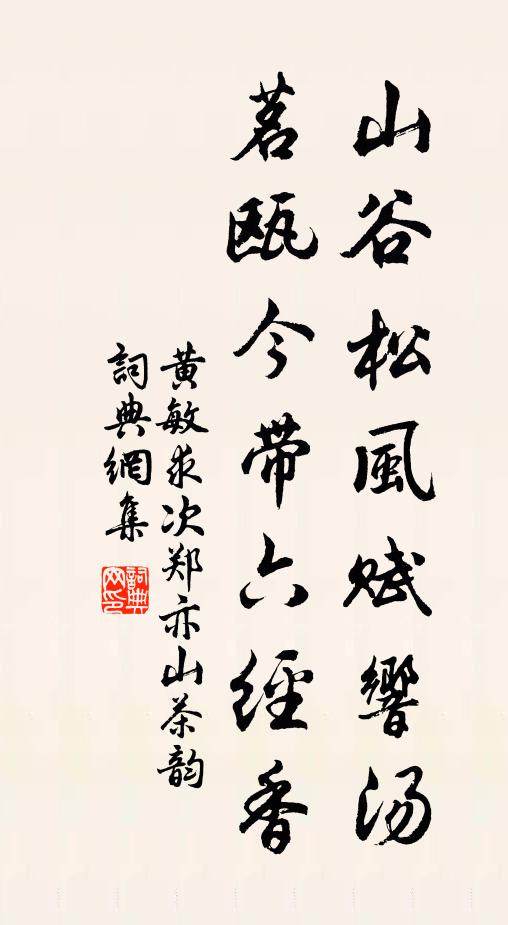 山谷松風赋響汤
茗瓯今带六經香
黄敏求次郑亦山茶韵
詞典網集
詞典網印